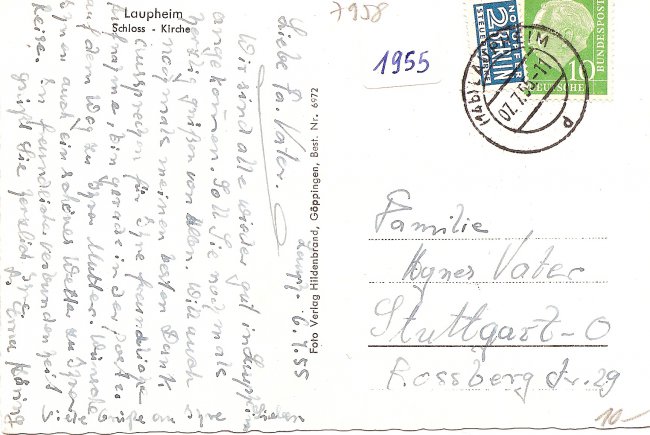 Laupheim
Schloss - Kirche
7958
1955
NOTOPFER
2 BERLIN
STEUERMARKE
DEUTSCHE
BUNDESPOST
10
(14b) LAUPHEIM
07.7.55-11
Foto Verlag Hildenbrand, Göppingen, Best. Nr. 6972
Lauph. 6.7.55
Liebe Fa. Vater.
Wir sind alle wieder gut in Laupheim
angekommen. Soll Sie nochmals
herzlich grüßen von allen. Will auch
nochmals meinen besten Dank
aussprechen für Ihre freundliche
Aufnahme, bin gerade in der
auf dem Weg zu Ihrer Mutter. Wünsche
Ihnen auch ein schönes Wetter zu Ihrer
Reise. In freundlicher Verbundenheit
grüßt Sie herzlich Ihre
Viele Grüße an Ihre Lieben
Familie
Agnes Vater
Stuttgart-O
Rossbergstr. 29
10-